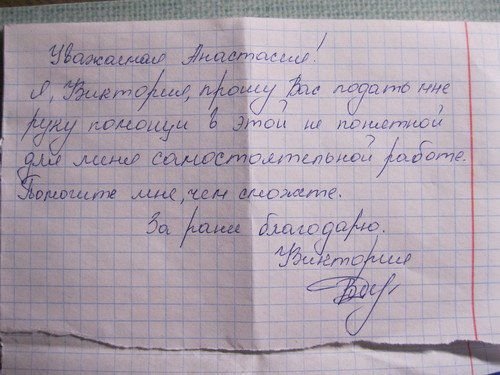 Уважаемая Анастасия!
Я, Виктория, прошу Вас подать мне
руку помощи в этой не понятной
для меня самостоятельной работе.
Помогите мне, чем сможете.
За ранее благодарю.
Виктория